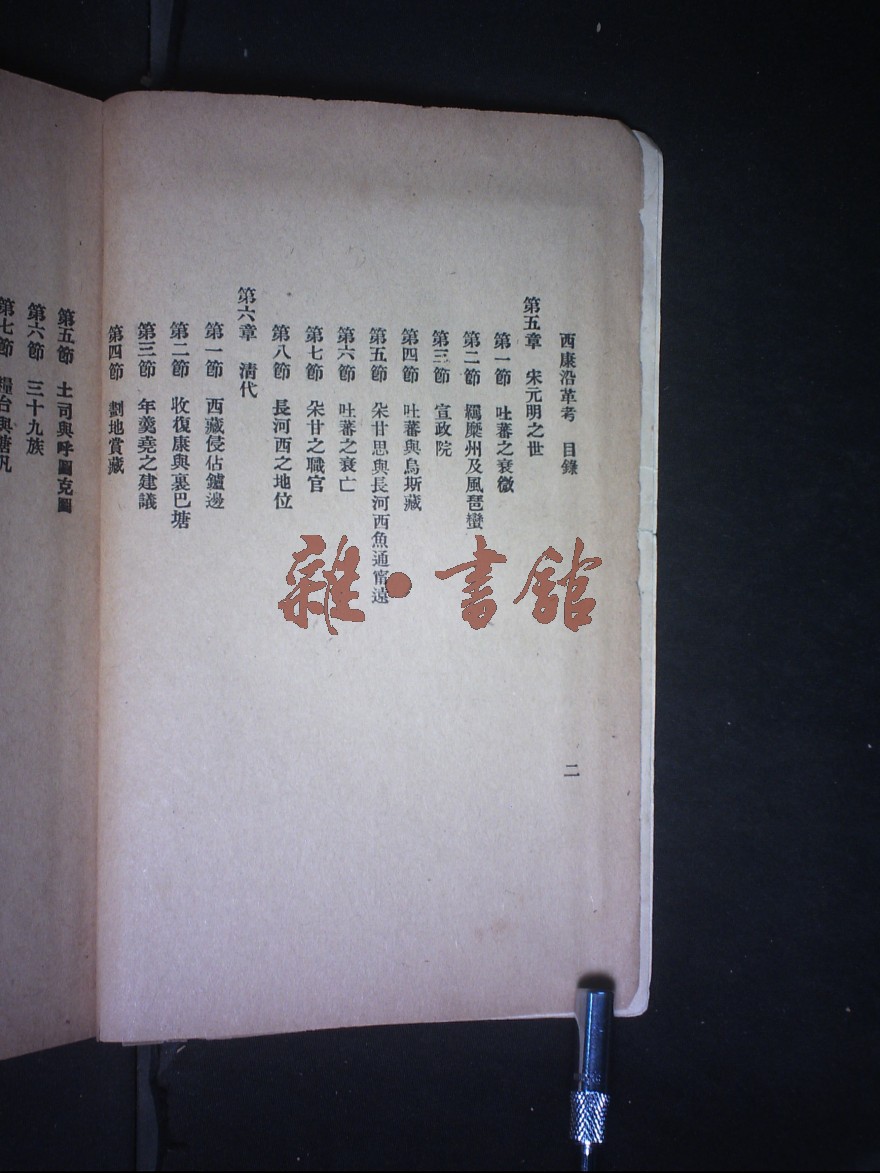 西康沿革考　目錄
第五章　宋元明之世
第一節　吐蕃之衰微
第二節　羈縻州及風琶蠻
第三節　宣政院
第四節　吐蕃與烏斯藏
第五節　朵甘思與長河西魚通甯遠
第六節　吐蕃之衰亡
第七節　朵甘之職官
第八節　長河西之地位
第六章　清代
第一節　西藏侵佔鑪邊
第二節　收復康與裏巴塘
第三節　年羹堯之建議
第四節　劃地賞藏
二
第五節　土司與呼圖克圖
第六節　三十九族
第七節　糧台與塘汛
雜·書館